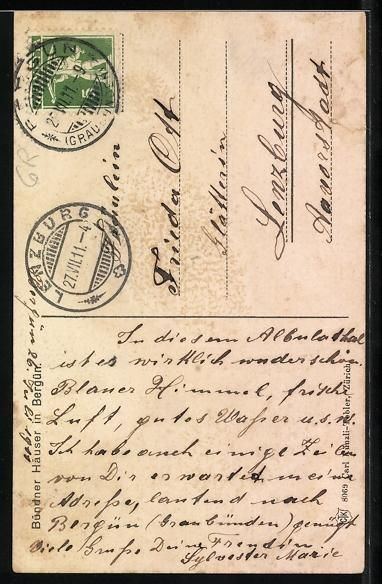 BERGÜN
(GRAUB
LENZBURG
27.VII.11.-4
Fräulein
Frieda Ott
Glätterin
Lenzburg
In diesem Albulathal
ist es wirklich wunderschön.
Blauer Himmel, frische
Luft, gutes Wasser u.s.w.
Ich habe auch einige Zeilen
von Dir erwartet, meine
Adresse, lautend nach
Bergün (Graubünden) genügt
Viele Grüße Deine Freundin
Sylvester Marie
Bündner Häuser in Bergün.
8069 Carl Künzli-Tobler, Zürich